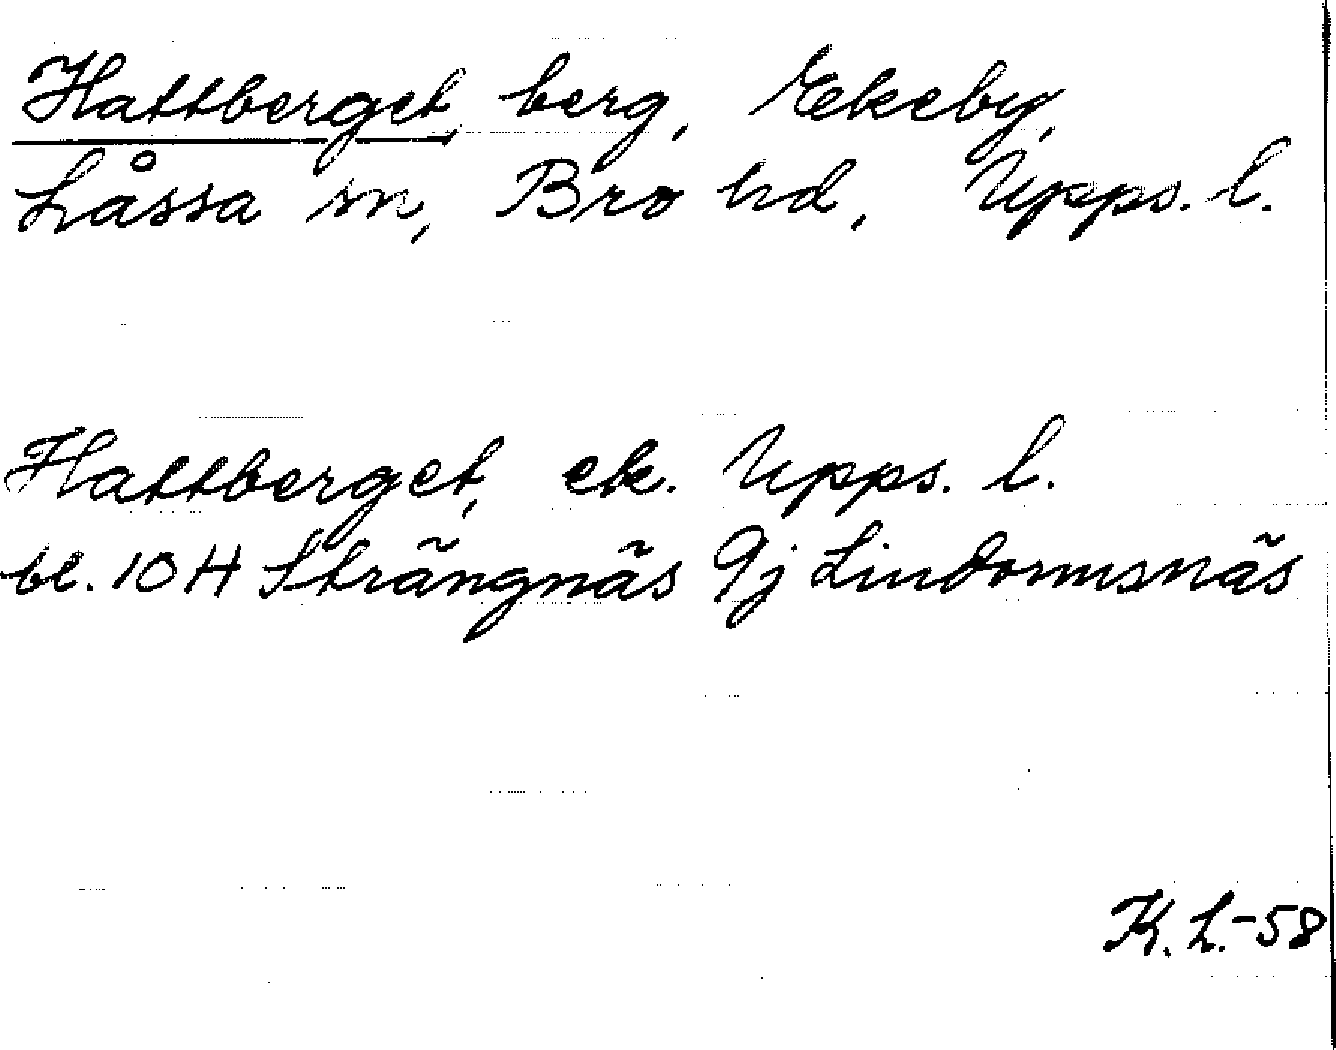 Hattberget, berg, Ekeby,
Låssa sn, Bro hd, Upps. l.
Hattberget, ek. Upps. l.
bl. 10 H Strängnäs 9j Lindormsnäs
K. L.-58